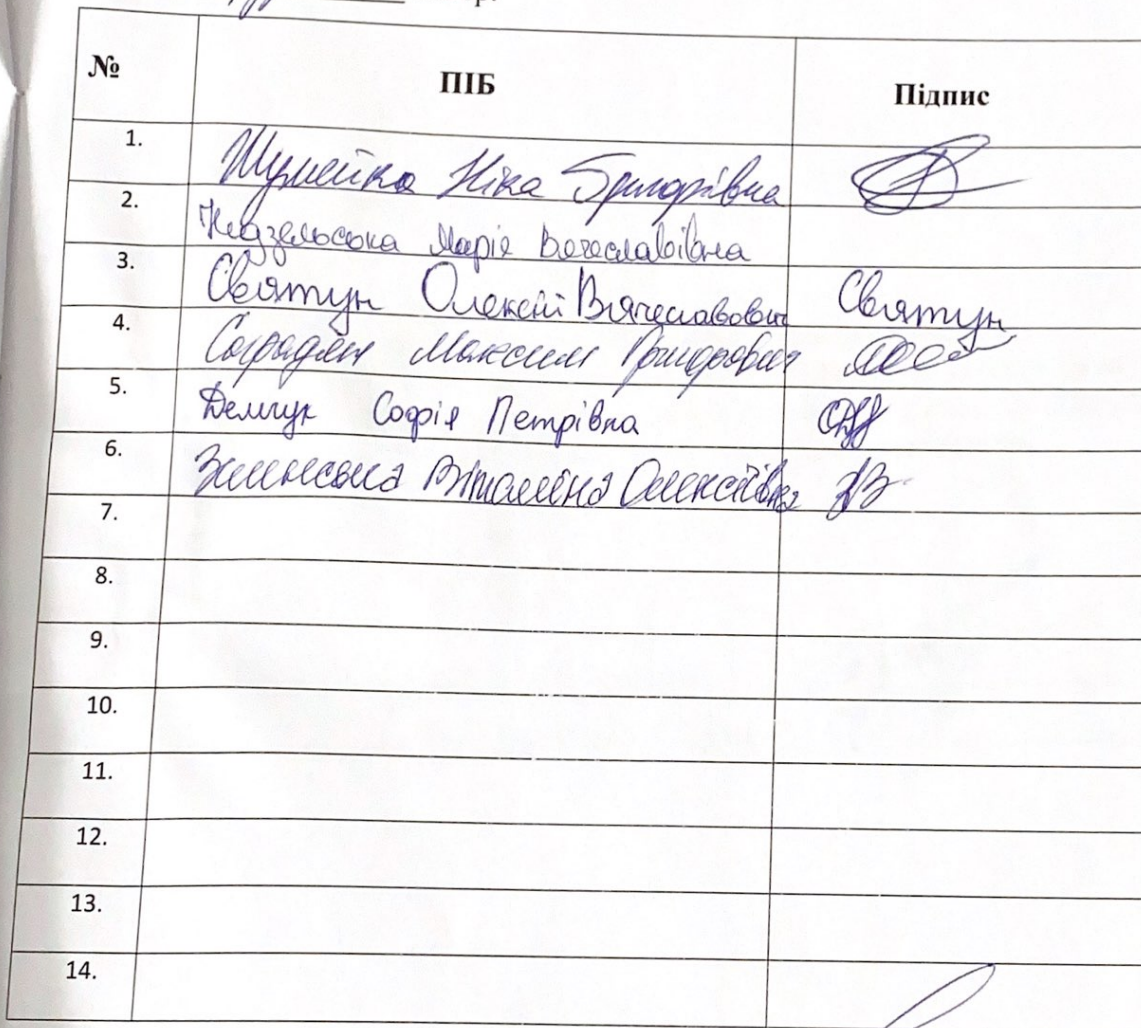 № ПІБ Підпис
1. Шумейко Ніка Григорівна
2. Недзельська Марія Вячеславівна
3. Святун Олексій Вячеславович Святун
4. Максим Григорович
5. Демчук Софія Петрівна
6. Віталіна Олексіївна
7.
8.
9.
10.
11.
12.
13.
14.